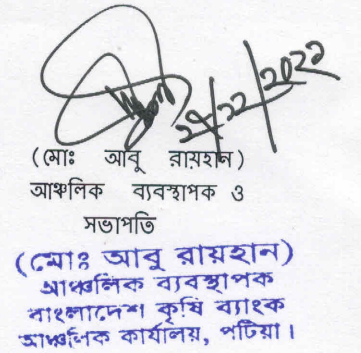 ২৯/১১/২০২২
(মোঃ আবু রায়হান)
আঞ্চলিক ব্যবস্থাপক ও
সভাপতি
(মোঃ আবু রায়হান)
আঞ্চলিক ব্যবস্থাপক
বাংলাদেশ কৃষি ব্যাংক
আঞ্চলিক কার্যালয়, পটিয়া।